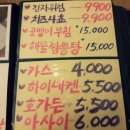 김치우동 9,900
치즈나쵸 9,900
골뱅이무침 15,000
해물짬뽕탕 15,000
카스 4,000
하이네켄 5,500
호가든 5,500
아사히 6,000